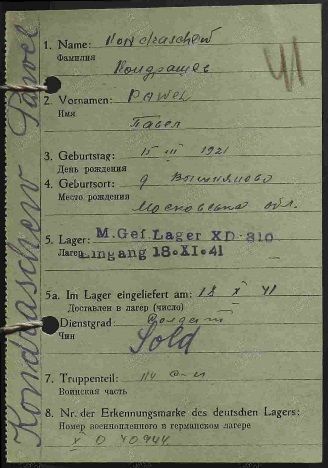 Kondraschew Pawel
41
1. Name: Kondraschew
Фамилия
Кондрашев
2. Vornamen: PAWEL
Имя
Павел
3. Geburtstag: 15 III 1921
День рождения
4. Geburtsort: д
Место рождения
Московська обл.
5. Lager: M.Gef Lager XD 310
Лагерь Eingang 18.XI.41
5a. Im Lager eingeliefert am: 18 X 41
Доставлен в лагерь (число)
Dienstgrad: солдат
Чин Sold
7. Truppenteil: 114
Воинская часть
8. Nr. der Erkennungsmarke des deutschen Lagers:
Номер военнопленного в германском лагере
X D 40944